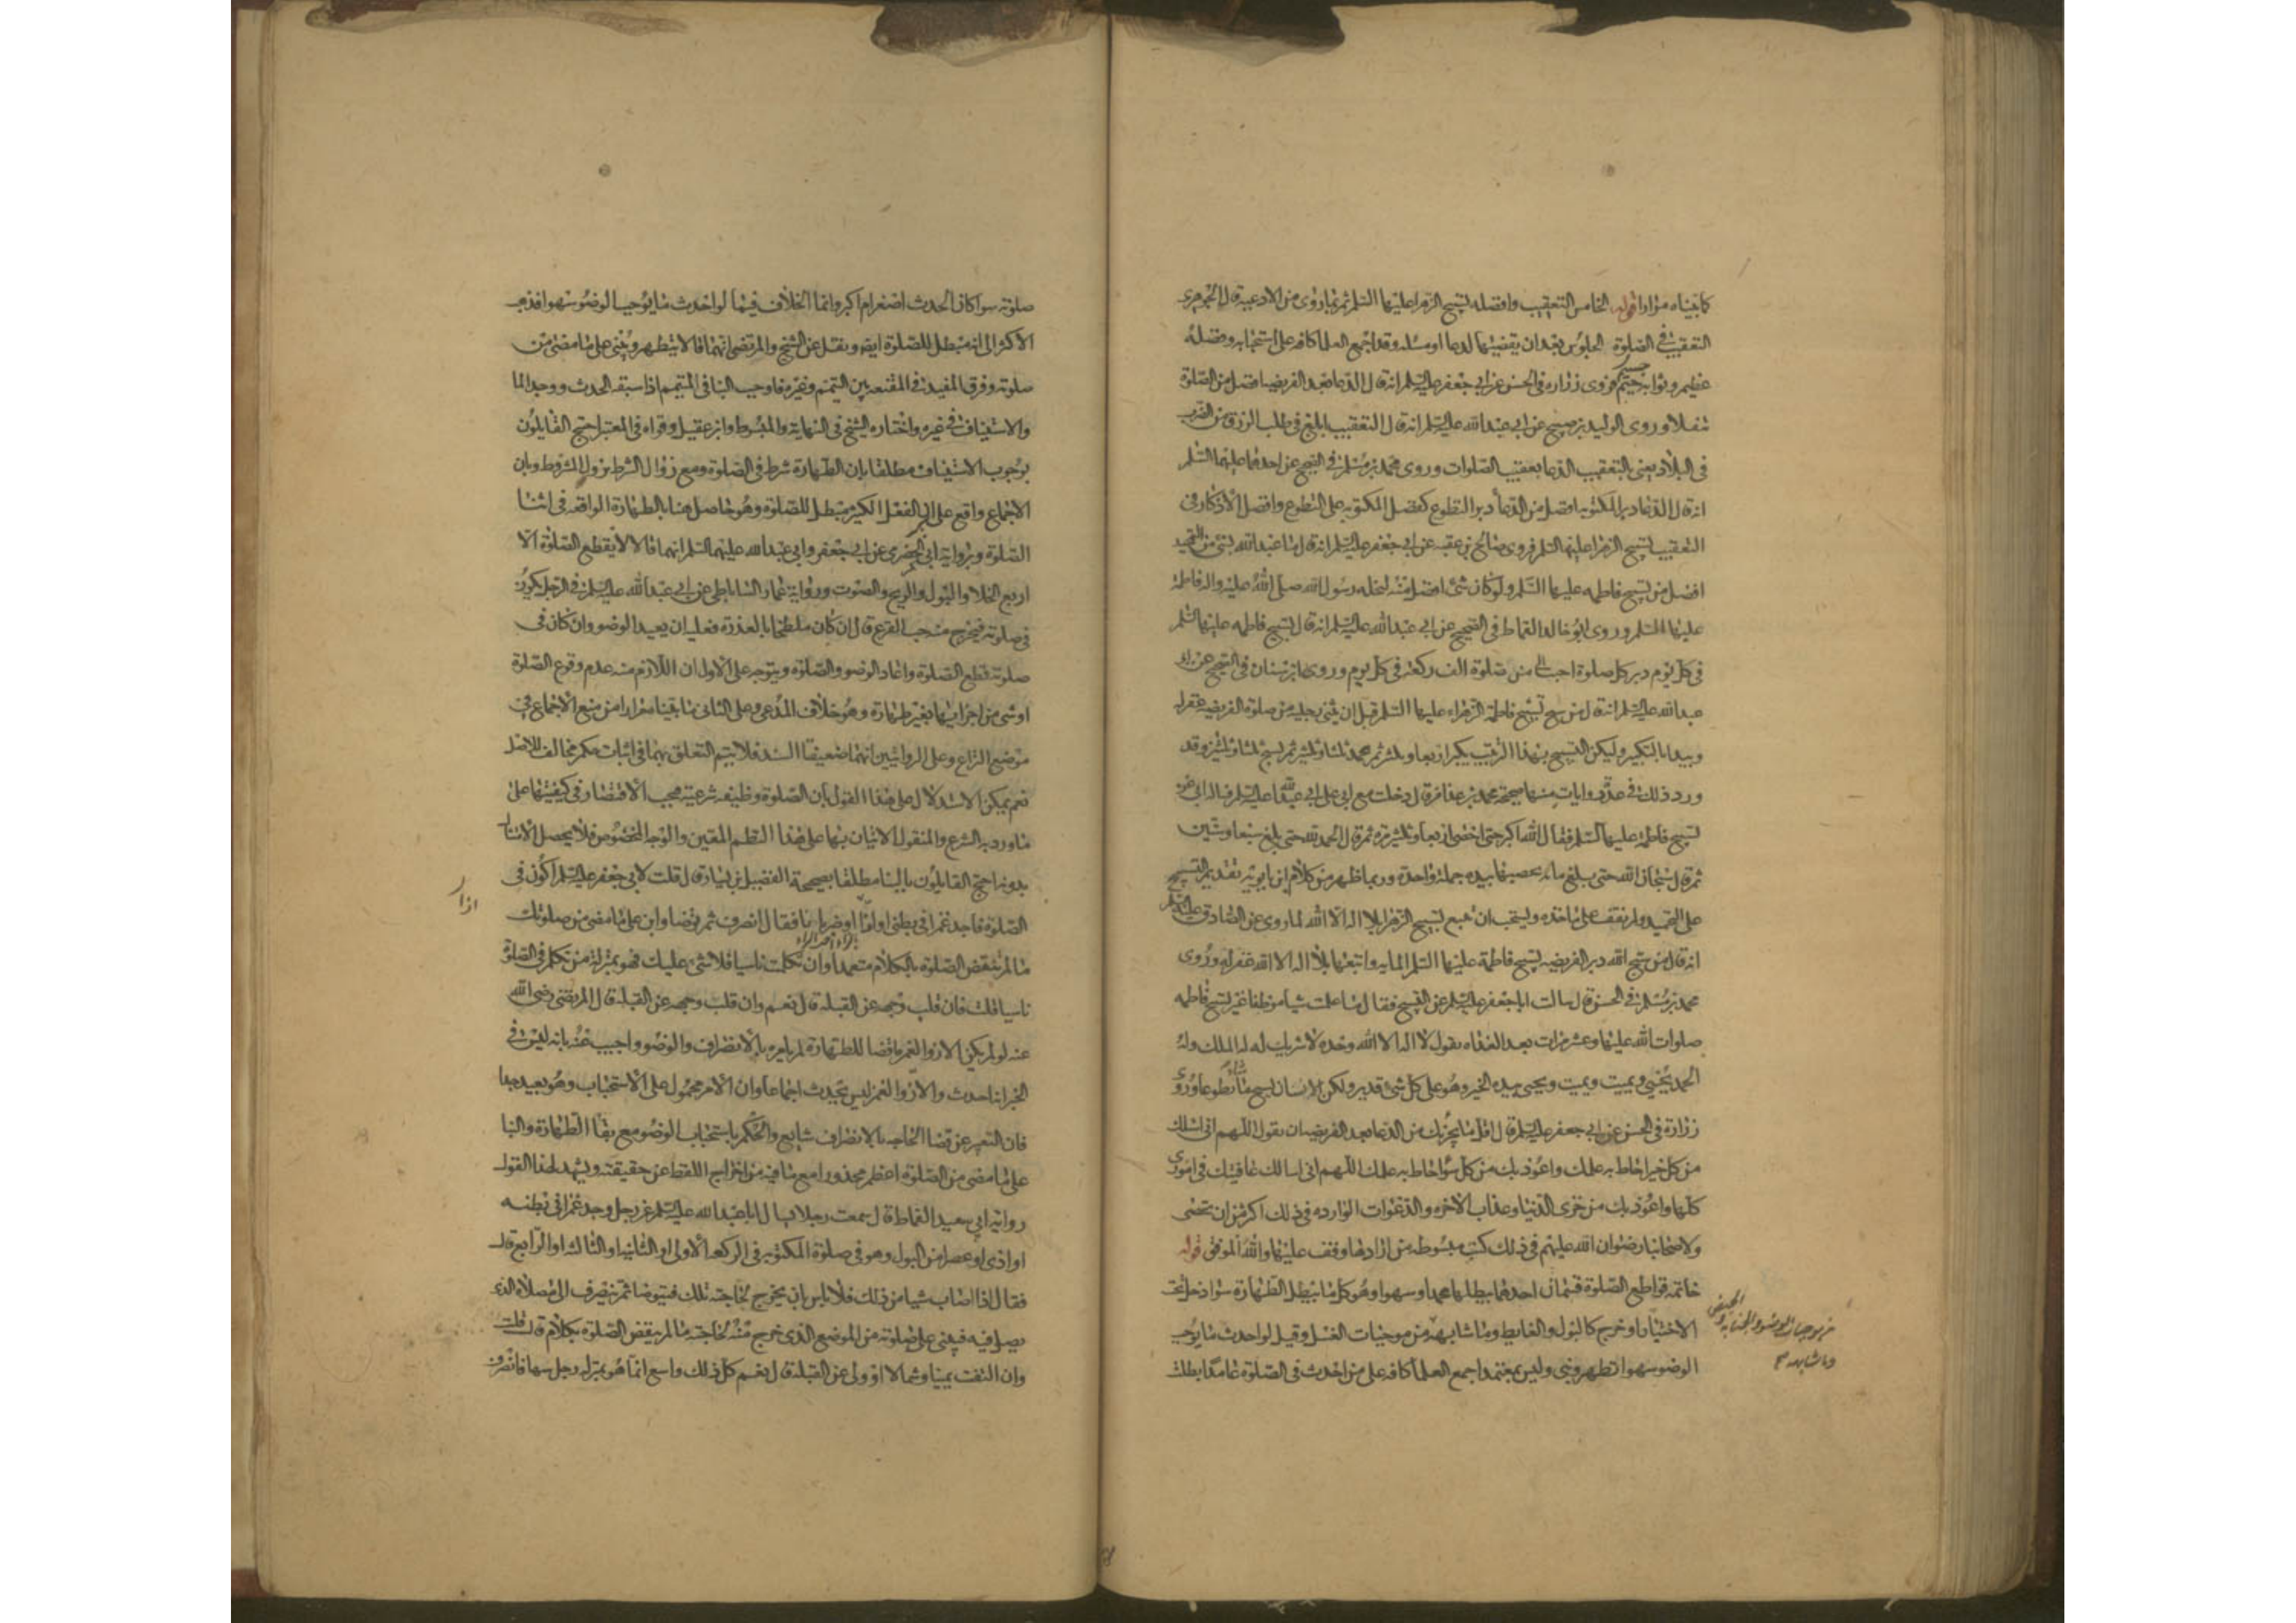 كما بيناه مرارا قوله الخامس التعقيب وافضله تسبيح الزهرا عليها السلم ثم بما روى من الادعية قال الجوهرى
التعقيب فى الصلوة الجلوس بعد ان يقضيها لدعا او مسئلة وقد اجمع العلما كافه على استحبابه وفضله
عظيم وثوابه جسيم فروى زراره فى الحسن عن ابى جعفر عليه السلم انه قال الدعا بعد الفريضة افضل من الصلوة
تنفلا وروى الوليد بن صبيح عن ابى عبد الله عليه السلم انه قال التعقيب ابلغ فى طلب الرزق من الضرب
فى البلاد يعنى بالتعقيب الدعا بعقيب الصلوات وروى محمد بن مسلم فى الصحيح عن احدهما عليهما السلم
انه قال الدعا دبر المكتوبه افضل من الدعأ دبر التطوع كفضل المكتوبه على التطوع وافضل الاذكار فى
التعقيب تسبيح الزهرا عليها السلم فروى صالح بن عقبه عن ابى جعفر عليه السلم انه قال ما عبد الله بشئ من التحميد
افضل من تسبيح فاطمه عليها السلم ولو كان شئ افضل منه لنحله رسول الله صلى الله عليه واله فاطمة
عليها السلم وروى ابو خالد القماط فى الصحيح عن ابى عبد الله عليه السلم انه قال تسبيح فاطمه عليها السلم
فى كل يوم دبر كل صلوة احب الى من صلوة الف ركعة فى كل يوم وروى ابن سنان فى الصحيح عن ابى
عبد الله عليه السلم انه قال من سبح تسبيح فاطمة الزهراء عليها السلم قبل ان يثنى رجليه من صلوة الفريضه غفر له
ويبدا بالتكبير وليكن التسبيح بهذا الترتيب يكبر اربعا وثلثين ثم يحمد ثلثا وثلثين ثم يسبح ثلثا وثلثين وقد
ورد ذلك فى عدة روايات منها صحيحة محمد بن عذافر قال دخلت مع ابى على ابى عبد الله عليه السلم فساله ابى عن
تسبيح فاطمة عليها السلم فقال الله اكبر حتى احصى اربعا وثلثين مرة ثم قال الحمد لله حتى بلغ سبعا وستين
ثم قال سبحان الله حتى بلغ مائه يحصيها بيده جملة واحدة وربما ظهر من كلام ابن بابويه تقديم التسبيح
على التحميد ولم نقف على ماخذه ويستحب ان تتبع تسبيح الزهرا بلا اله الا الله لما روى عن الصادق عليه السلم
انه قال من سبح الله دبر الفريضه تسبيح فاطمة عليها السلم المايه واتبعها بلا اله الا الله غفر له وروى
محمد بن مسلم فى الحسن قال سالت ابا جعفر عليه السلم عن التسبيح فقال ما علمت شيا موظفا غير تسبيح فاطمه
صلوات الله عليها وعشر مرات بعد الغداه تقول لا اله الا الله وحده لا شريك له له الملك وله
الحمد يحيى ويميت ويميت ويحيى بيده الخير وهو على كل شئ قدير ولكن الانسان يسبح ما شاء تطوعا وروى
زرارة فى الحسن عن ابى جعفر عليه السلم قال اقل ما يجزيك من الدعا بعد الفريضه ان تقول اللهم انى اسئلك
من كل خير احاط به علمك واعوذ بك من كل سوء احاط به علمك اللهم انى اسالك عافيتك فى امورى
كلها واعوذ بك من خزى الدنيا وعذاب الاخره والدعوات الوارده فى ذلك اكثر من ان تحصى
ولاصحابنا رضوان الله عليهم فى ذلك كتب مبسوطه من ارادها وقف عليها والله الموفق قوله
خاتمه قواطع الصلوة قسمان احدهما يبطلها عمدا وسهوا وهو كل ما يبطل الطهارة سواء دخل تحت
الاختيار او خرج كالبول والغايط وما شابهه من موجبات الغسل وقيل لو احدث ما يوجب
الوضو سهوا تطهر وبنى وليس بمعتمد اجمع العلما كافه على من احدث فى الصلوة عامدا بطلت
من موجبات الوضو والجنابه والحيض
وما شابهه
صلوته سوا كان الحدث اصغر ام اكبر وانما الخلاف فيما لو احدث ما يوجب الوضو سهوا فذهب
الاكثر الى انه مبطل للصلوة ايضه ونقل عن الشيخ والمرتضى انهما قالا يتطهر ويبنى على ما مضى من
صلوته وفرق المفيد فى المقنعه بين المتيمم وغيره فاوجب البنا فى المتيمم اذا سبقه الحدث ووجد الما
والاستيناف فى غيره واختاره الشيخ فى النهاية والمبسوط وابن عقيل وقواه فى المعتبر احتج القايلون
بوجوب الاستيناف مطلقا بان الطهارة شرط فى الصلوة ومع زوال الشرط يزول المشروط وبان
الاجماع واقع على ان الفعل الكثير مبطل للصلوة وهو حاصل هنا بالطهارة الواقعه فى اثنا
الصلوة وبرواية ابى بكر الحضرمى عن ابى جعفر وابى عبد الله عليهما السلم انهما قالا لا يقطع الصلوة الا
اربع الخلا والبول والريح والصوت ورواية عمار الساباطى عن ابى عبد الله عليه السلم فى الرجل يكون
فى صلوته فيخرج منه حب القرع قال ان كان ملطخا بالعذرة فعليه ان يعيد الوضو وان كان فى
صلوته قطع الصلوة واعاد الوضو والصلوة ويتوجه على الاول ان اللازم منه عدم وقوع الصلوة
او شئ من اجزايها بغير طهارة وهو خلاف المدعى وعلى الثانى ما بيناه مرارا من منع الاجماع فى
موضع النزاع وعلى الروايتين انهما ضعيفتا السند فلا يتم التعلق بهما فى اثبات حكم مخالف للاصل
نعم يمكن الاستدلال على هذا القول بان الصلوة وظيفه شرعيه فيجب الاقتصار فى كيفيتها على
ما ورد به الشرع والمنقول الاتيان بها على هذا النظم المعين والوجه المخصوص فلا يحصل الامتثال
بدونه احتج القايلون بالبنا مطلقا بصحيحة الفضيل بن يسار قال قلت لابى جعفر عليه السلم اكون فى
الصلوة فاجد غمزا فى بطنى او اذى او ضربانا فقال انصرف ثم توضا وابن على ما مضى من صلوتك
ازا
ما لم تنقض الصلوة بالكلام متعمدا وان تكلمت ناسيا فلا شئ عليك فهو بمنزلة من تكلم فى الصلوة
ناسيا قلت فان قلب وجهه عن القبلة قال نعم وان قلب وجهه عن القبلة قال المرتضى رضى الله
عنه لو لم يكن الاز والغمز ناقضا للطهارة لم يامره بالانصراف والوضو واجيب عنه بانه ليس فى
الخبر انه احدث والاز والغمز ليس بحدث اجماعا وان الامر محمول على الاستحباب وهو بعيد جدا
فان التعبير عن قضا الحاجه بالانصراف شايع والحكم باستحباب الوضو مع بقا الطهارة والبنا
على ما مضى من الصلوة اعظم محذورا مع ما فيه من اخراج اللفظ عن حقيقته ويشهد لهذا القول
رواية ابى سعيد القماط قال سمعت رجلا يسال ابا عبد الله عليه السلم عن رجل وجد غمزا فى بطنه
او اذى او عصرا من البول وهو فى صلوة المكتوبه فى الركعه الاولى او الثانيه او الثالثه او الرابعه قال
فقال اذا اصاب شيا من ذلك فلا باس بان يخرج لحاجته تلك فيتوضا ثم ينصرف الى مصلاه الذى
يصلى فيه فيبنى على صلوته من الموضع الذى خرج منه لحاجته ما لم ينقض الصلوة بكلام قال قلت
وان التفت يمينا وشمالا او ولى عن القبلة قال نعم كل ذلك واسع انما هو بمنزلة رجل سها فانصرف